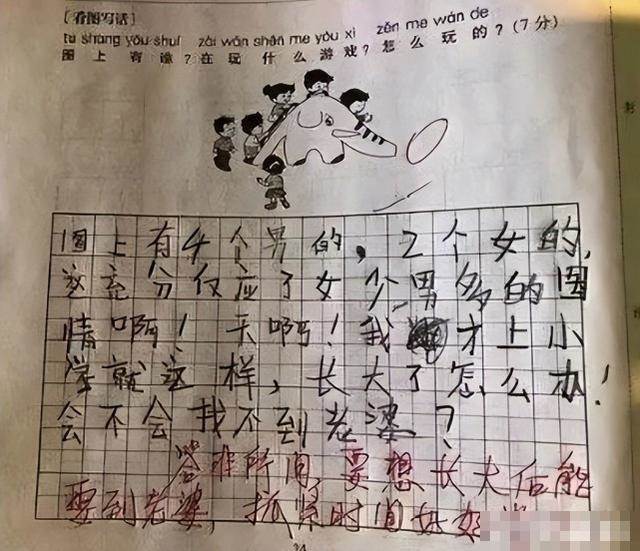 [看图写话]
tu shang yǒu shuí zài wán shén me yóu xì zěn me wán de
图上有谁?在玩什么游戏?怎么玩的?(7分)
图上有4个男的,2个女的,
这充分仅应了女少男多的国
情啊!天啊!我才上小
学就这样,长大了怎么办!
会不会找不到老婆?
答非所问,要想长大后能
娶到老婆,抓紧时间好好
24